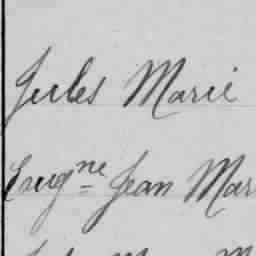 Jules Marie
Eug^ne Jean Mar